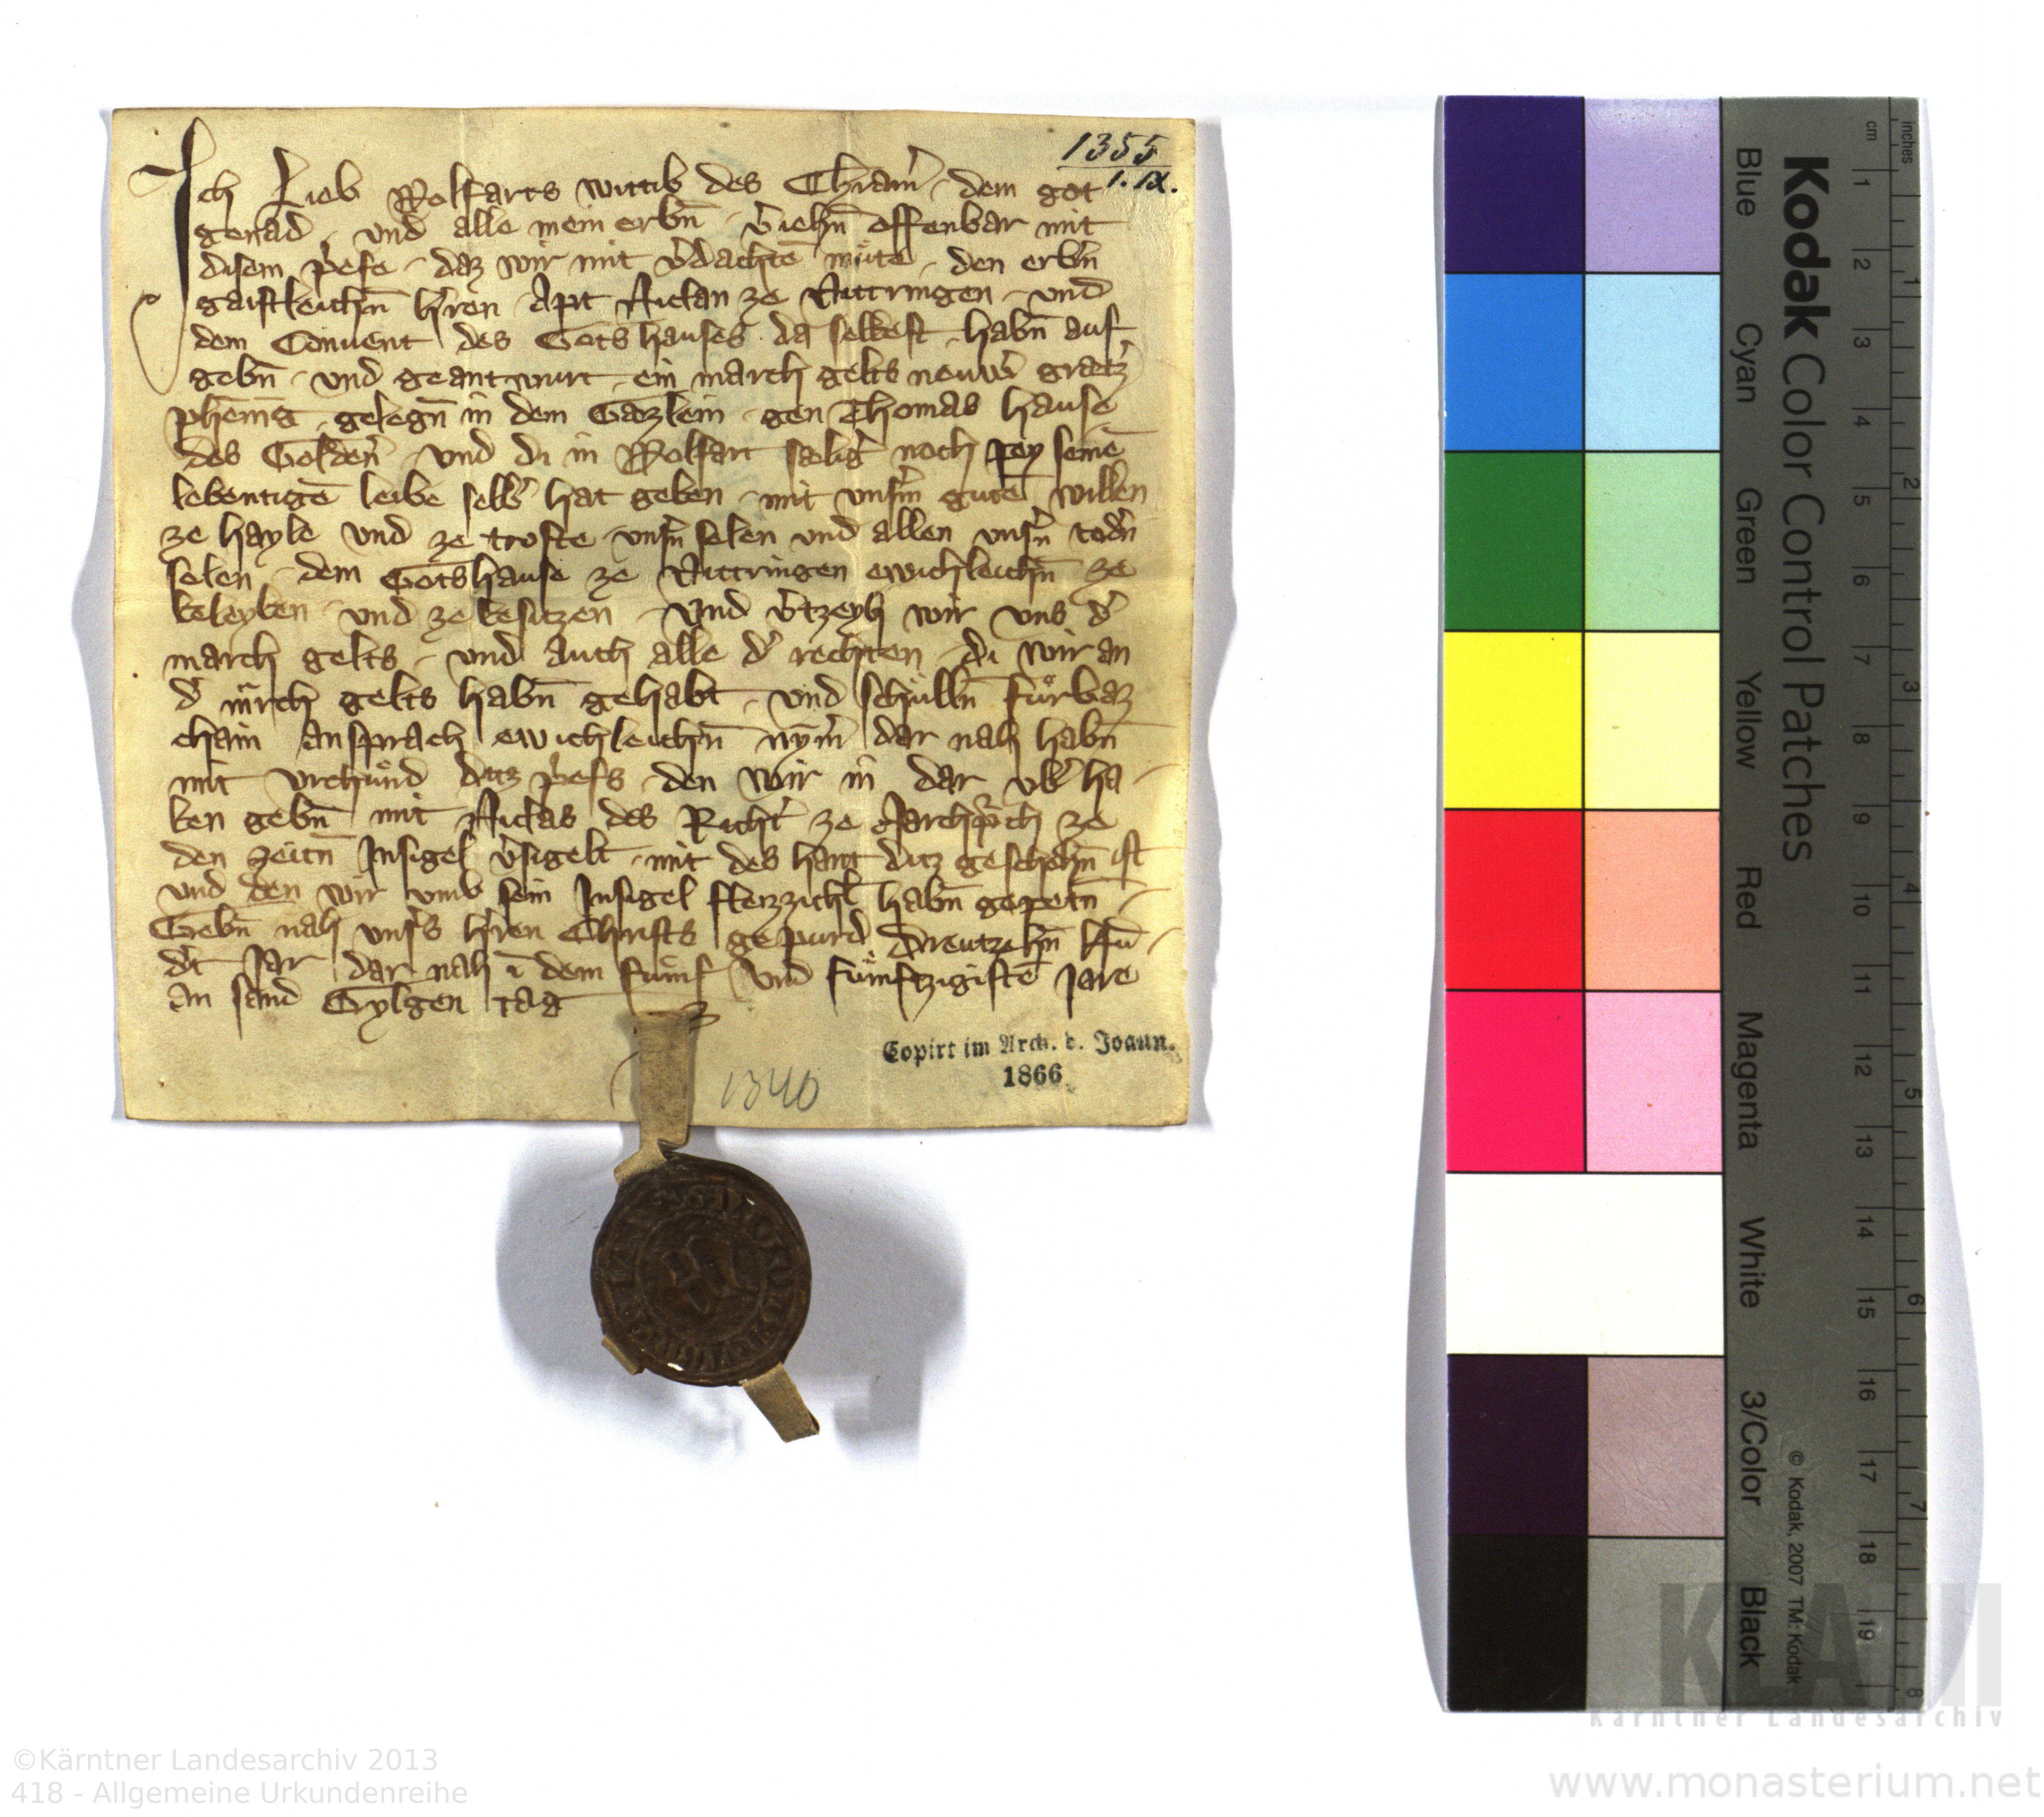 1355
1. IX.
Ich Lieb Wolfarts wittib des Chramˀ dem got
genad und alle mein erbn̄ vˀiehn̄ offenbar mit
disem pˀefe daz wir mit vˀdachtē mu̍te den erbˀn
gaistleichn̄ hˀren Apt Niclan ze Vittringen und
dem Conuent des Gotshauses da selbest habn̄ auf
gebn̄ und geantwurt ein march gelts neuwˀ gretzˀ
phēnig gelegn̄ in dem Gazlein gen Thomas hause
des Goldenˀ und di in Wolfart seligˀ noch pey seinē
lebentigē leibe selbˀ hat geben mit unsˀm gutē willen
ze hayle und ze troste unsˀn selen und allen unsˀn todˀn
selen dem Gotshause ze Vittringen ewichleichn̄ ze
beleyben und ze besitzen Und vˀtzeyh wir uns dˀ
march gelts und auch alle dˀ rechten di wir an
dˀ march gelts habn̄ gehabt und schulln̄ furbaz
chain ansprach ewichleichn̄ nymˀ dar nah habn̄
mit urchund ditz pˀefs den wir in dar ubˀ ha
ben gebn̄ mit Niclas des Richtˀ ze Marchpˀch ze
den zeitn̄ Insigel vˀsigelt mit des hant ditz geschehn̄ ist
und den wir umb sein Insigel flenzzichl habn̄ gepetn̄
Gebn̄ nah unsˀs hˀren Christs gepurd Dreutzehn̄ hūn
dˀt Jar dar nah ī dem funf und funftzigistē Jare
an sand Gylgen tag
Copirt im Arch. d. Joann.
1866
1340
Kodak Color Control Patches
Blue
Cyan
Green
Yellow
Red
Magenta
White
3/Color
Black
© Kodak, 2007 TM: Kodak
cm 1 2 3 4 5 6 7 8 9 10 11 12 13 14 15 16 17 18 19
inches 1 2 3 4 5 6 7 8
KLA
Kärntner Landesarchiv
©Kärntner Landesarchiv 2013
418 - Allgemeine Urkundenreihe
www.monasterium.net